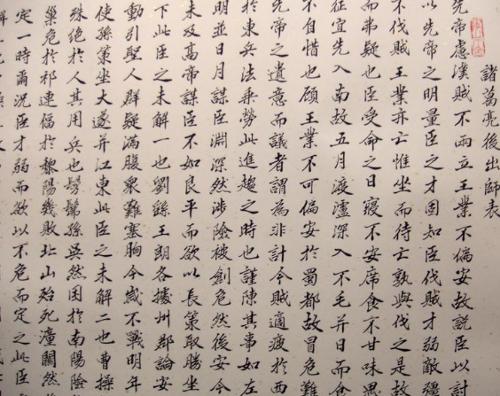 諸葛亮後出師表
先帝慮漢賊不兩立王業不偏安故託臣以討
以先帝之明量臣之才固知臣伐賊才弱敵彊
不伐賊王業亦亡惟坐而待亡孰與伐之是故
而弗疑也臣受命之日寢不安席食不甘味思
征宜先入南故五月渡瀘深入不毛并日而食
不自惜也顧王業不可偏安於蜀都故冒危難
先帝之遺意而議者謂為非計今賊適疲於西
於東兵法乘勞此進趨之時也謹陳其事如左
明並日月謀臣淵深然涉險被創危然後安今
未及高帝謀臣不如良平而欲以長策取勝坐
下此臣之未解一也劉繇王朗各據州郡論安
動引聖人群疑滿腹眾難塞胸今歲不戰明年
使孫策坐大遂并江東此臣之未解二也曹操
殊絕於人其用兵也髣髴孫吳然困於南陽險
巢危於祁連偪於黎陽幾敗北山殆死潼關然
定一時爾況臣才弱而欲以不危而定之此臣